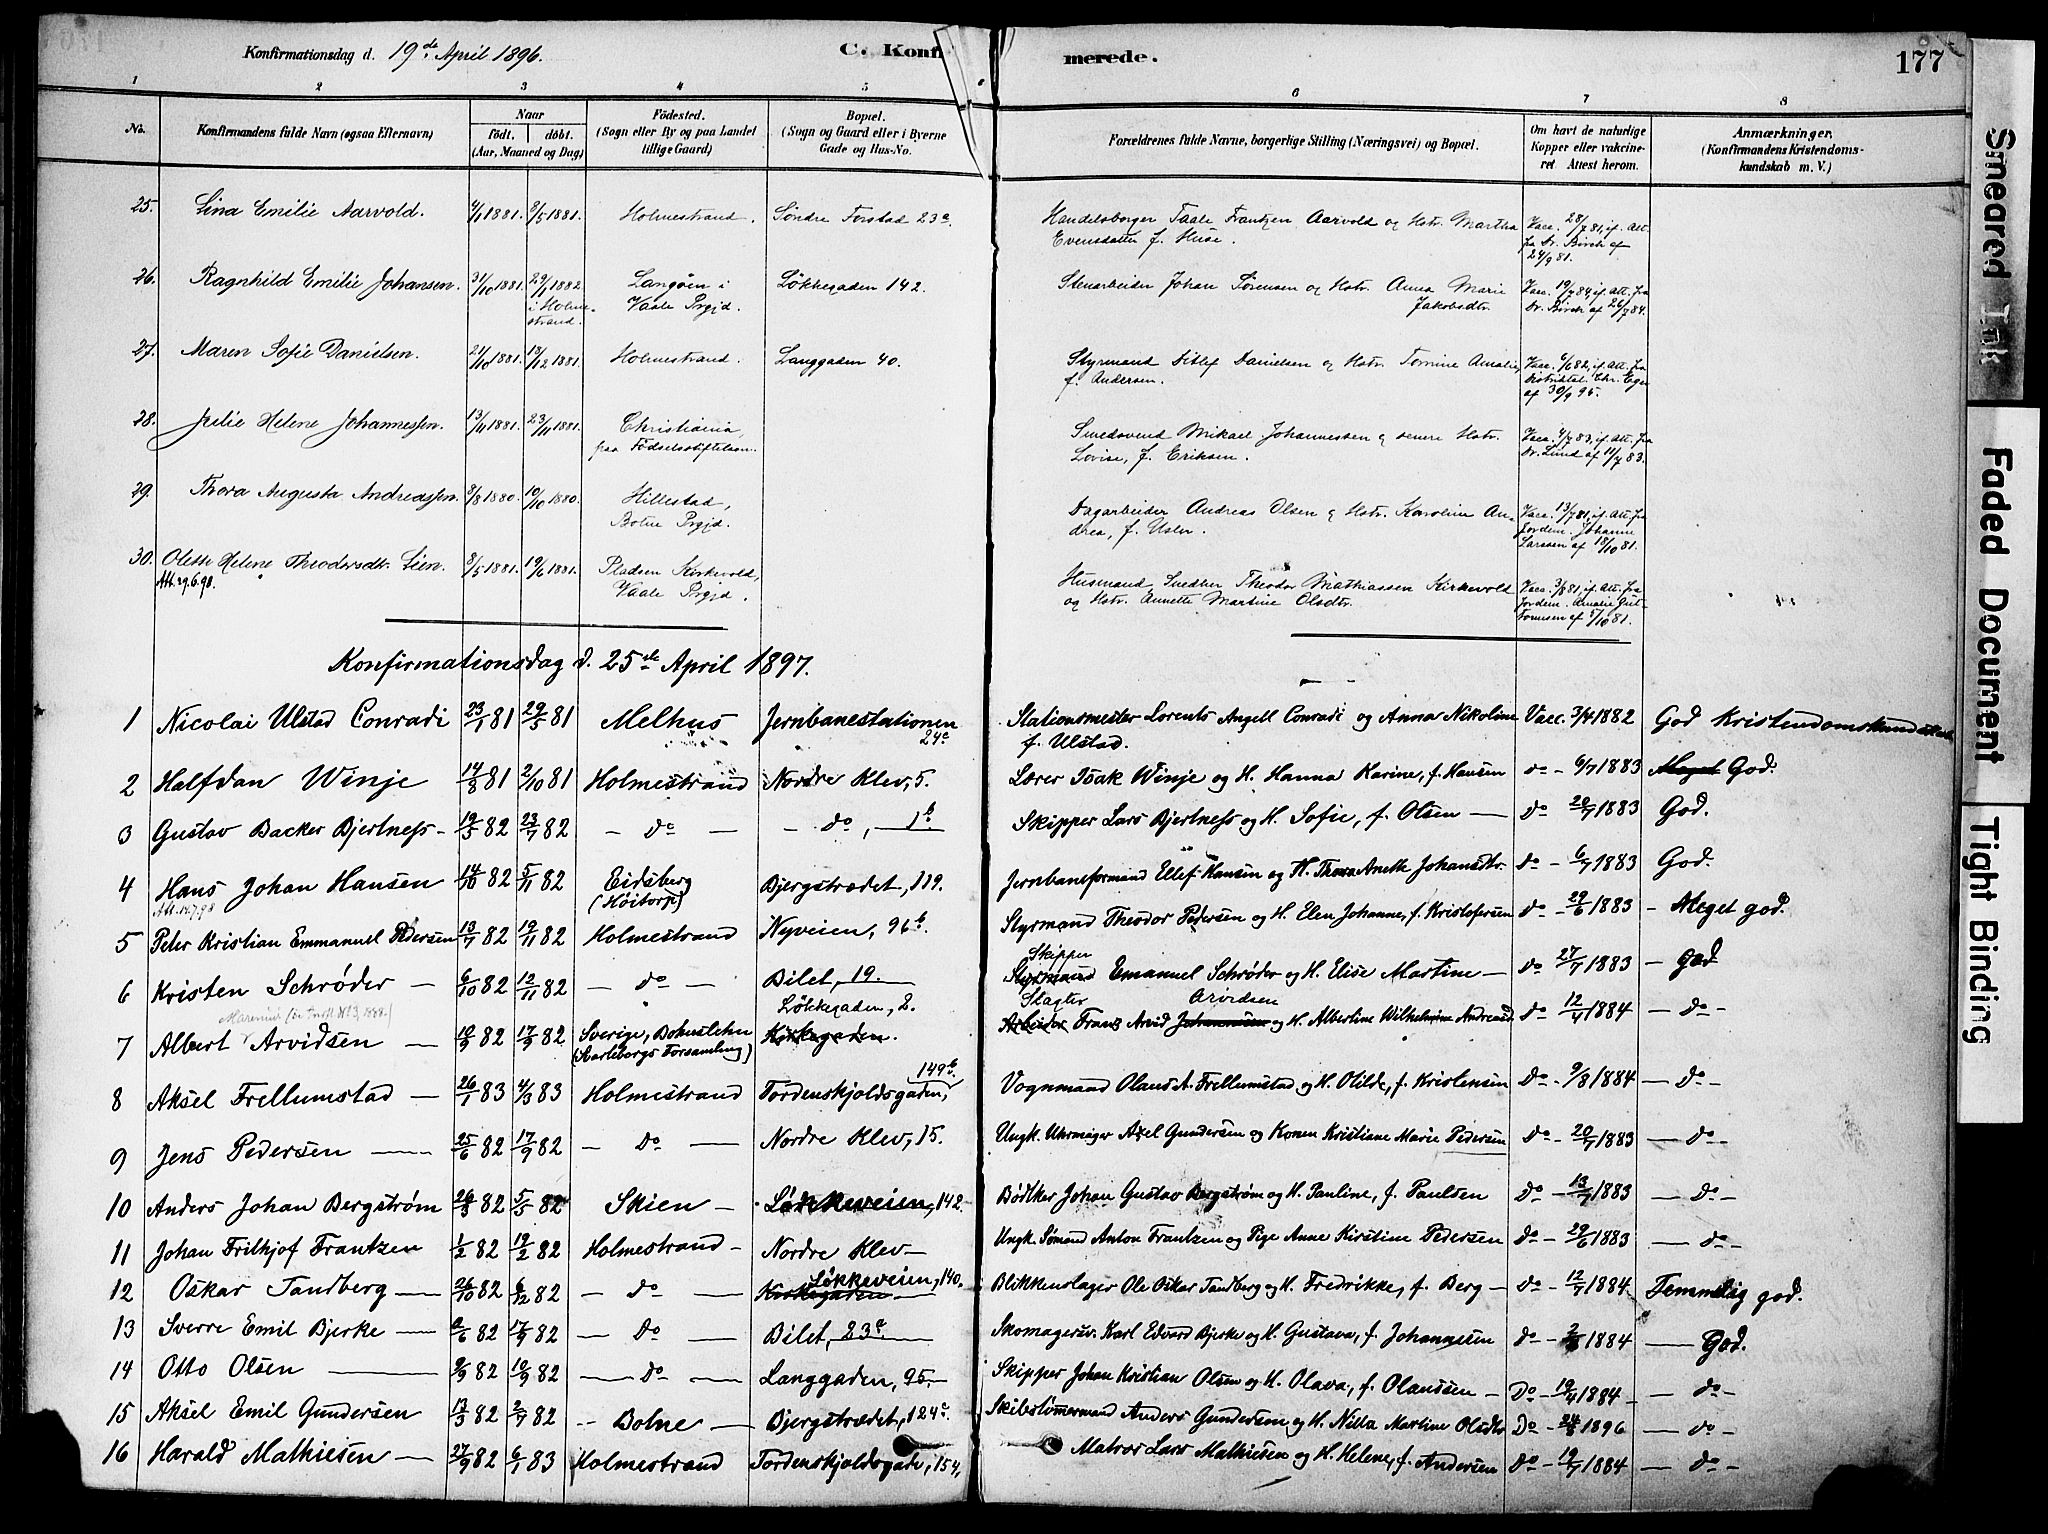 Konfirmationsdag d. 19de April 1896.
C. Konfirmerede.
177
1 2 3 4 5 6 7 8
No. Konfirmandens fulde Navn (ogsaa Efternavn) Naar født. døbt. (Aar, Maaned og Dag) Fødested. (Sogn eller By og paa Landet tillige Gaard) Bopæl. (Sogn og Gaard eller i Byerne Gade og Hus-No. Forældrenes fulde Navne, borgerlige Stilling (Næringsvei) og Bopæl. Om havt de naturlige Kopper eller vakcineret Attest herom. Anmærkninger, (Konfirmandens Kristendomskundskab m. V.)
25. Lina Emilie Aarvold. 1881. 8/5 1881. Holmestrand. Søndre Torstad 23a Handelsborger Taale Frantzen Aarvold og Hstr. Martha
Evensdatter f. Huse. Vacc. 28/7 81, if. Att. fra Dr. Birch af 24/9 81.
26. Ragnhild Emilie Johansen. 31/10 1881. 29/1 1882 i Holmestrand. Langøen i Vaale Prgjd. Løkkegaden 142. Stenarbeider Johan Sørensen og Hstr. Anna Marie
Jakobsdtr. Vacc. 19/7 84, if. Att. fra Dr. Birch af 26/7 84.
27. Maren Sofie Danielsen. 21/10 1881. 13/12 1881. Holmestrand. Langgaden 40. Styrmand Ditlef Danielsen og Hstr. Tomine Amalie,
f. Andersen. Vacc. 6/6 82, if. Att. fra Distriktsl. Chr. Eger af 30/9 95.
28. Julie Helene Johannessen. 13/11 1881. 23/11 1881. Christiania, paa Fødselsstiftelsen. Smedsvend Mikael Johannessen & senere Hstr.
Lovise, f. Eriksen. Vacc. 4/7 83, if. Att. fra Dr. Lund af 11/7 83.
29. Thora Augusta Andreassen. 8/8 1880. 10/10 1880. Hillestad, Botne Prgjd. Dagarbeider Andreas Olsen & Hstr. Karoline Andrea, f. Vacc. 13/7 81, if. Att. fra Jordem. Johanne Larssen af 18/10 81.
30. Oleth Helene Theodorsdtr. Lien. 8/5 1881. 19/6 1881. Pladsen Kirkevold, Vaale Prgjd. Husmand Snedker Theodor Mathiassen Kirkevold
Att. 29.6.98. og Hstr. Annette Martine Olsdtr. Vacc. 3/8 81, if. Att. fra Jordem. Amalie Guttormsen af 5/10 81.
Konfirmationsdag d. 25de April 1897.
1 Nicolai Ulstad Conradi 23/1 81 29/5 81 Melhus Jernbanestationen 24a Stationsmester Lorents Angell Conradi og Anna Nikoline
f. Ulstad. Vacc. 3/4 1882 God Kristendomskundskab
2 Halfdan Winje 14/8 81 2/10 81 Holmestrand Nordre Klev, 5. Lærer Isak Winje og H. Hanna Karine, f. Hansen do - 6/7 1883 Meget God.
3 Gustav Backer Bjertness - 19/5 82 23/7 82 - Do - - do, 1b Skipper Lars Bjertness og H. Sofie, f. Olsen - Do - 20/7 1883 God.
4 Hans Johan Hansen 14/10 82 5/11 82 Eidsberg (Høitorp) Bjergstrædet, 119. Jernbaneformand Ellef Hansen og H. Thora Anette Johansdtr. Do - 6/7 1883 God.
Att. 14.7.98
5 Peter Kristian Emmanuel Pedersen 13/7 82 19/11 82 Holmestrand Nyveien, 96b. Styrmand Theodor Pedersen og H. Elen Johanne, f. Kristofersen Do - 29/6 1883 - Meget god.
6 Kristen Schrøder - 6/10 82 12/11 82 - Do - Bilet, 19. Skipper Styrmand Emanuel Schrøder og H. Elise Martine - Do - 27/7 1883 - god
7 Albert Arvidsen - 82 17/9 82 Sverige, Bohuslehn Løkkegaden, 2. Kirkegaden. Slagter Arbeider Frans Arvid Johannesen Arvidsen og H. Albertine Wilhelmine Do - 12/4 1884 - Do -
8 Aksel Frellumstad - 26/1 83 4/3 83 Holmestrand Tordenskjoldsgaden, 149b Vognmand Olaus A. Frellumstad og H. Otilde, f. Kristensen Do - 9/8 1884 - Do -
9 Jens Pedersen - 25/6 82 17/9 82 - Do - Nordre Klev, 15. Ungk. Uhrmager Axel Gundersen og Konen Kristiane Marie Pedersen Do - 20/7 1883 - Do -
10 Anders Johan Bergstrøm 26/3 82 5/5 82 Skien - Løkkeveien, 142 - Bødtker Johan Gustav Bergstrøm og H. Pauline, f. Paulsen Do - 13/7 1883 - Do -
11 Johan Frithjof Frantzen 1/2 82 19/2 82 Holmestrand - Nordre Klev - Ungk. Sømand Anton Frantzen og Pige Anne Kirstine Pedersen Do - 29/6 1883 - do -
12 Oskar Tandberg - 26/10 82 6/12 82 - Do - Løkkeveien, 140. Kirkegaden Blikkenslager Ole Oskar Tandberg og H. Fredrikke, f. Berg - Do - 12/7 1884. Temmelig god.
13 Sverre Emil Bjerke - 82 17/9 82 - Do - Bilet, 23a. Skomagersv. Karl Edvard Bjerke og H. Gustava, f. Johannesen Do - 1884 - God.
14 Otto Olsen - 9/9 82 82 - Do - Langgaden, 95. - Skipper Johan Kristian Olsen og H. Olava, f. Olaussen - Do - 19/4 1884 - Do -
15 Aksel Emil Gundersen 13/5 82 2/7 82 - Botne - Bjergstrædet, 124a. Skibstømmermand Anders Gundersen og H. Nilla Martine Olsdtr Do - 1896 - do -
16 Harald Mathiesen - 27/9 82 6/1 83 Holmestrand Tordenskjoldsgade, 154, Matros Lars Mathiesen og H. Helene, f. Andersen Do - 19/7 1884 - do -
Smeared Ink
Faded Document
Tight Binding